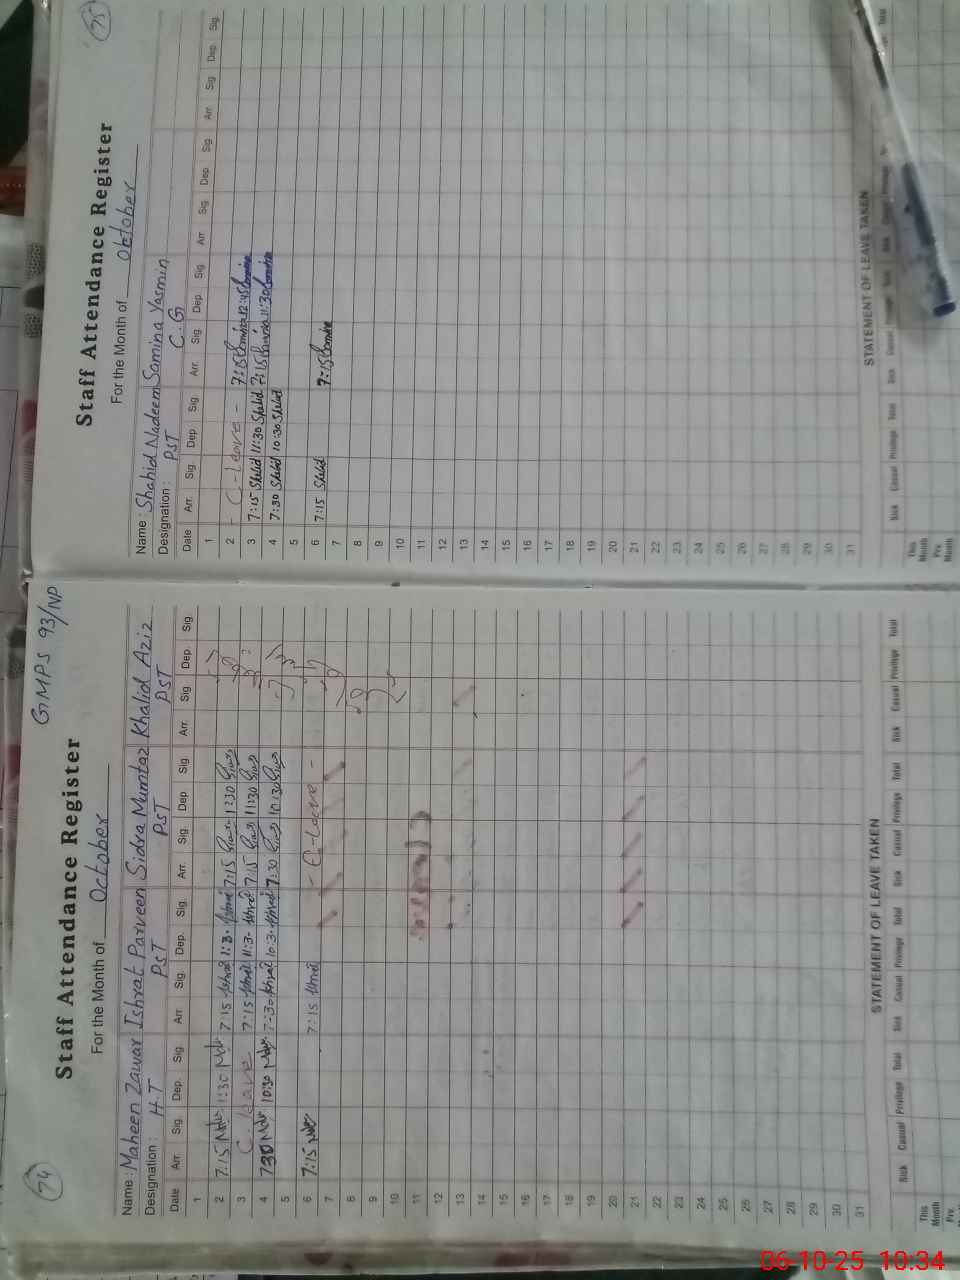 74
GMPS 93/NP
Staff Attendance Register
For the Month of October
Name : Maheen Zawar Ishrat Parveen Sidra Mumtaz Khalid Aziz
Designation : H.T PST PST PST
Date Arr. Sig. Dep. Sig. Arr. Sig. Dep. Sig. Arr. Sig. Dep Sig. Arr. Sig Dep. Sig.
1
2 7:15 1:30 7:15 11:3. 7:15 11:30
3 C. leave 7:15 11:3. 7:15 11:30
4 730 10:30 7:30 10:3. 7:30 10:30
5
6 7:15 7:15 - C-leave -
7
8
9
10
11
12
13
14
15
16
17
18
19
20
21
22
23
24
25
26
27
28
29
30
31
STATEMENT OF LEAVE TAKEN
Sick Casual Privilege Total Sick Casual Privilege Total Sick Casual Privilege Total Sick Casual Privilege Total
This Month
Prv.
75
Staff Attendance Register
For the Month of October
Name : Shahid Nadeem Samina Yasmin
Designation : PST C.G
Date Arr. Sig. Dep Sig. Arr. Sig. Dep Sig. Arr Sig. Dep. Sig. Arr Sig Dep. Sig.
1
2 - C-leave - 7:15 12:45
3 7:15 Shahid 11:30 Shahid 7:15 11:30
4 7:30 Shahid 10:30 Shahid
5
6 7:15 Shahid 7:15
7
8
9
10
11
12
13
14
15
16
17
18
19
20
21
22
23
24
25
26
27
28
29
30
31
STATEMENT OF LEAVE TAKEN
Sick Casual Privilege Total Sick Casual
This Month
Prv. Month
06-10-25 10:34